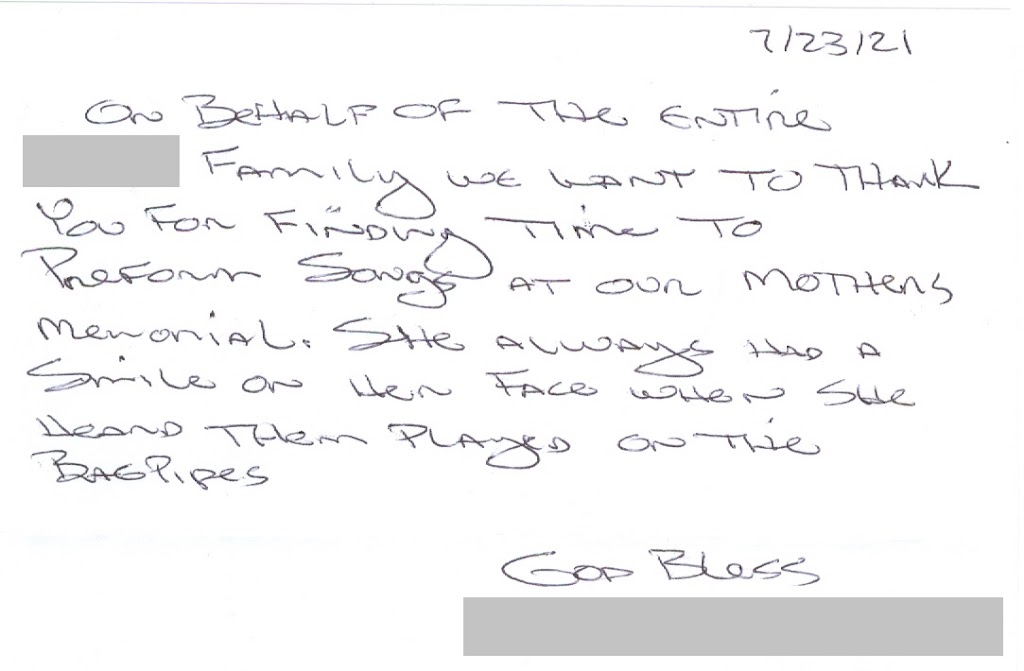 7/23/21
On Behalf of the entire
Family we want to thank
you for finding time to
Preform songs at our mothers
memorial. She always had a
smile on her face when she
heard them played on the
Bagpipes
God Bless